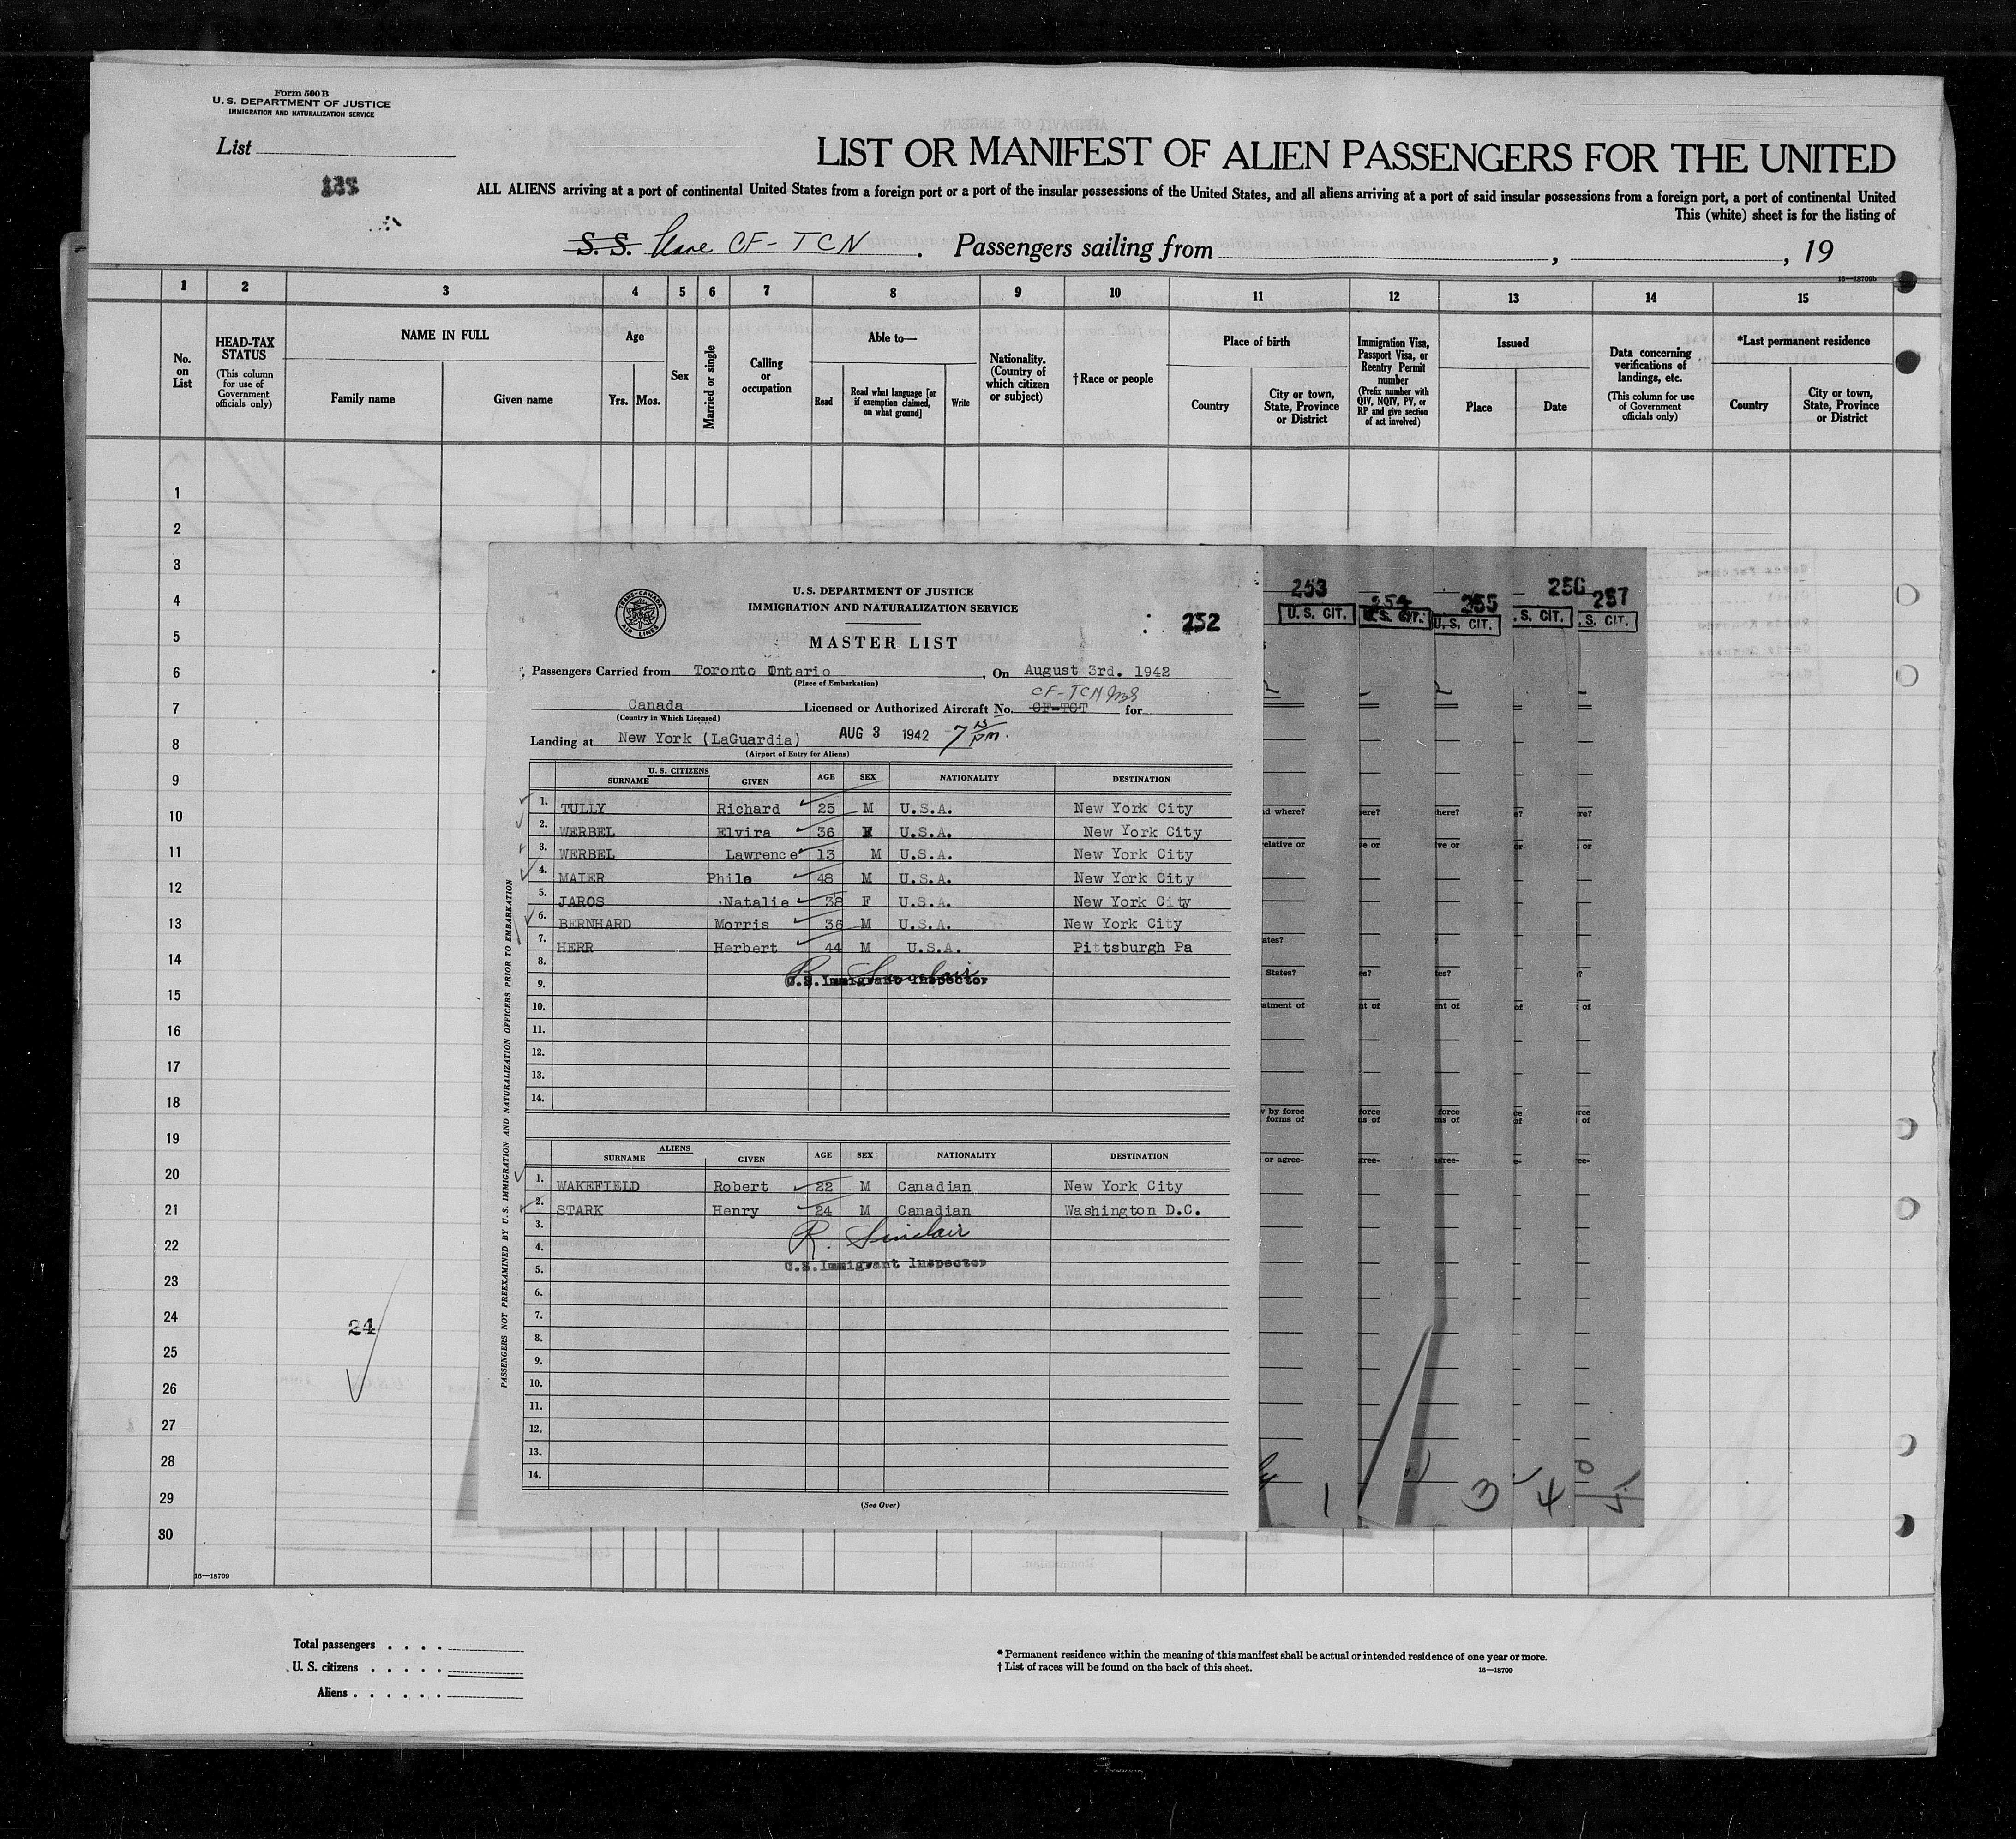 Form 500 B
U. S. DEPARTMENT OF JUSTICE
IMMIGRATION AND NATURALIZATION SERVICE
List
LIST OR MANIFEST OF ALIEN PASSENGERS FOR THE UNITED
ALL ALIENS arriving at a port of continental United States from a foreign port or a port of the insular possessions of the United States, and all aliens arriving at a port of said insular possessions from a foreign port, a port of continental United
This (white) sheet is for the listing of
S. S. Plane CF-TCN. Passengers sailing from , , 19
16—18709b
1 2 3 4 5 6 7 8 9 10 11 12 13 14 15
No. on List
HEAD-TAX STATUS (This column for use of Government officials only)
NAME IN FULL
Family name Given name
Age
Yrs. Mos.
Sex
Married or single
Calling or occupation
Able to—
Read
Read what language [or if exemption claimed, on what ground]
Write
Nationality. (Country of which citizen or subject)
†Race or people
Place of birth
Country
City or town, State, Province or District
Immigration Visa, Passport Visa, or Reentry Permit number (Prefix number with QIV, NQIV, PV, or RP and give section of act involved)
Issued
Place Date
Data concerning verifications of landings, etc. (This column for use of Government officials only)
*Last permanent residence
Country
City or town, State, Province or District
1
2
3
4
5
6
7
8
9
10
11
12
13
14
15
16
17
18
19
20
21
22
23
24
25
26
27
28
29
30
24
16—18709
TRANS-CANADA AIR LINES
U. S. DEPARTMENT OF JUSTICE
IMMIGRATION AND NATURALIZATION SERVICE
252
MASTER LIST
Passengers Carried from Toronto Ontario, On August 3rd. 1942
(Place of Embarkation)
CF-TCN
Canada Licensed or Authorized Aircraft No. CF-TCT for
(Country in Which Licensed)
Landing at New York (LaGuardia) AUG 3 1942 7 PM.
(Airport of Entry for Aliens)
U. S. CITIZENS
SURNAME GIVEN AGE SEX NATIONALITY DESTINATION
1. TULLY Richard 25 M U.S.A. New York City
2. WERBEL Elvira 36 F U.S.A. New York City
3. WERBEL Lawrence 13 M U.S.A. New York City
4. MAIER Phile 48 M U.S.A. New York City
5. JAROS Natalie 38 F U.S.A. New York City
6. BERNHARD Morris 36 M U.S.A. New York City
7. HERR Herbert 44 M U.S.A. Pittsburgh Pa
8.
R. Sinclair
9. U.S. Immigrant Inspector
10.
11.
12.
13.
14.
ALIENS
SURNAME GIVEN AGE SEX NATIONALITY DESTINATION
1. WAKEFIELD Robert 22 M Canadian New York City
2. STARK Henry 24 M Canadian Washington D.C.
3.
4. R. Sinclair
5. U.S. Immigrant Inspector
6.
7.
8.
9.
10.
11.
12.
13.
14.
(See Over)
PASSENGERS NOT PREEXAMINED BY U.S. IMMIGRATION AND NATURALIZATION OFFICERS PRIOR TO EMBARKATION
253 254 255 256 257
U. S. CIT. U. S. CIT. U. S. CIT. . S. CIT. . S. CIT.
d where? ere? here? e? re?
elative or ve or tve or or or
ates? ?
States? es? tes? ?
atment of nt of ent of of of
w by force force force ce rce
forms of ns of ms of of of
or agree- gree- agree- e- ee-
1 3 4 5
Total passengers . . . .
U. S. citizens . . . . .
Aliens . . . . . .
* Permanent residence within the meaning of this manifest shall be actual or intended residence of one year or more.
† List of races will be found on the back of this sheet.
16—18709